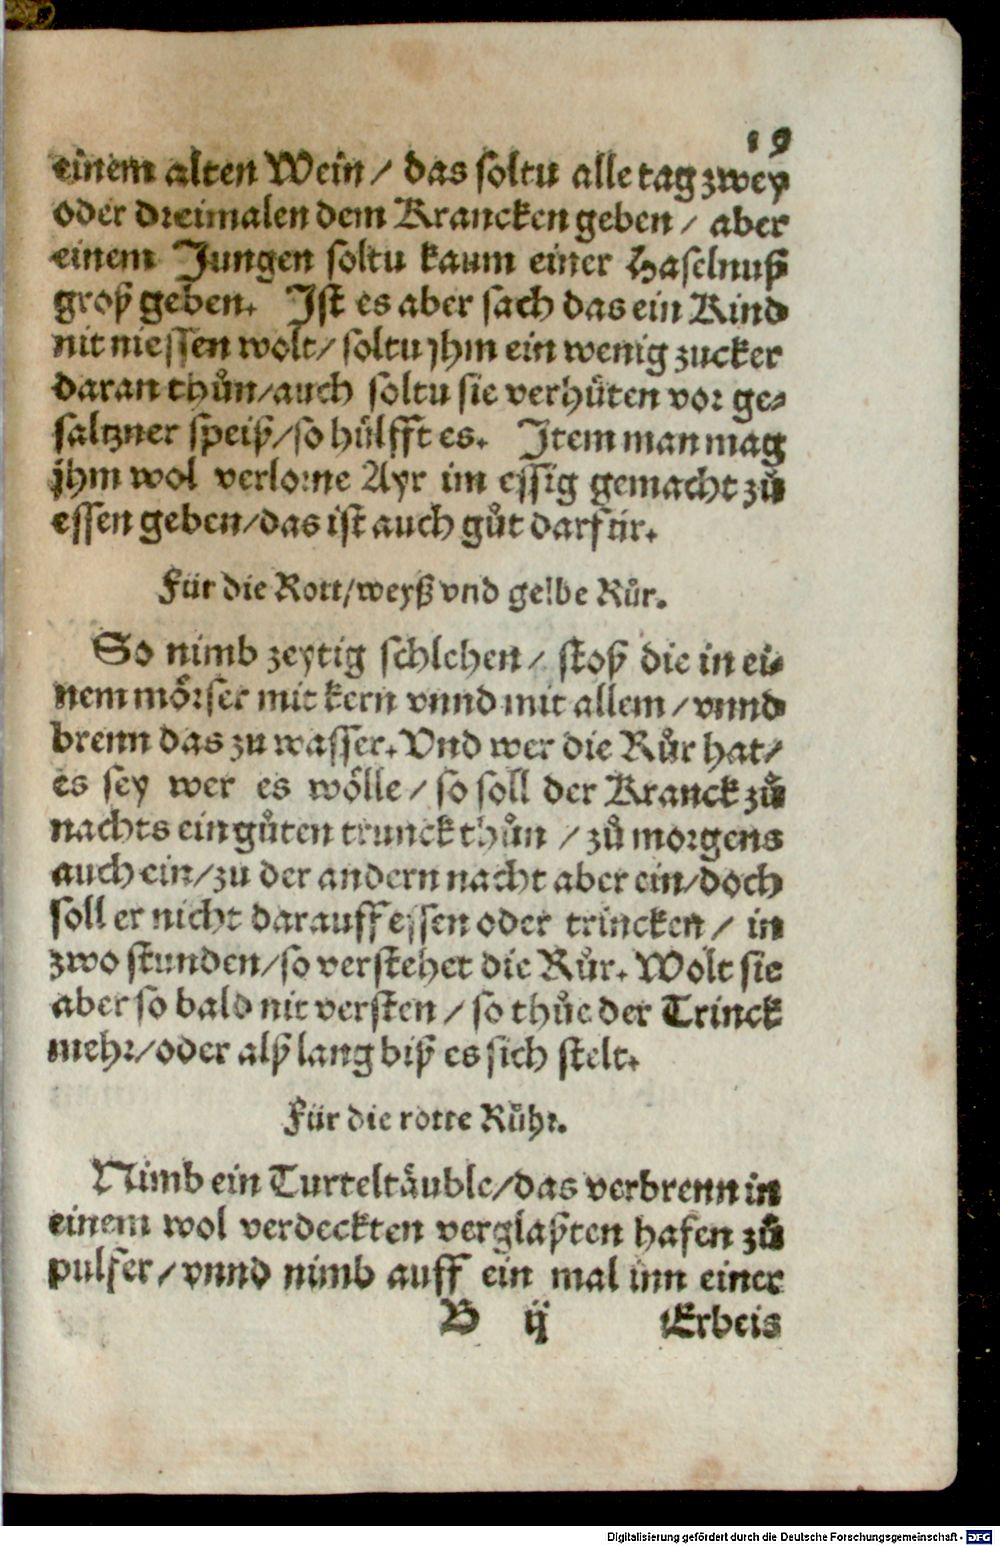 19
einem alten Wein / das soltu alle tag zwey
oder dreimalen dem Krancken geben / aber
einem Jungen soltu kaum einer Haselnuß
groß geben. Ist es aber sach das ein Kind
nit niessen wolt / soltu jhm ein wenig zucker
daran thůn / auch soltu sie verhüten vor ge⸗
saltzner speiß / so hülfft es. Item man mag
jhm wol verlorne Ayr im essig gemacht zů
essen geben / das ist auch gůt darfür.
Für die Rott / weyß vnd gelbe Růr.
So nimb zeytig schlehen / stoß die in ei⸗
nem mörser mit kern vnnd mit allem / vnnd
brenn das zu wasser. Vnd wer die Růr hat /
es sey wer es wölle / so soll der Kranck zů
nachts ein gůten trunck thůn / zů morgens
auch ein / zu der andern nacht aber ein / doch
soll er nicht darauff essen oder trincken / in
zwo stunden / so verstehet die Růr. Wolt sie
aber so bald nit versten / so thůe der Trinck
mehr / oder alß lang biß es sich stelt.
Für die rotte Růhr.
Nimb ein Turteltäuble / das verbrenn in
einem wol verdeckten verglaßten hafen zů
pulfer / vnnd nimb auff ein mal inn einer
B ij Erbeis
Digitalisierung gefördert durch die Deutsche Forschungsgemeinschaft - DFG